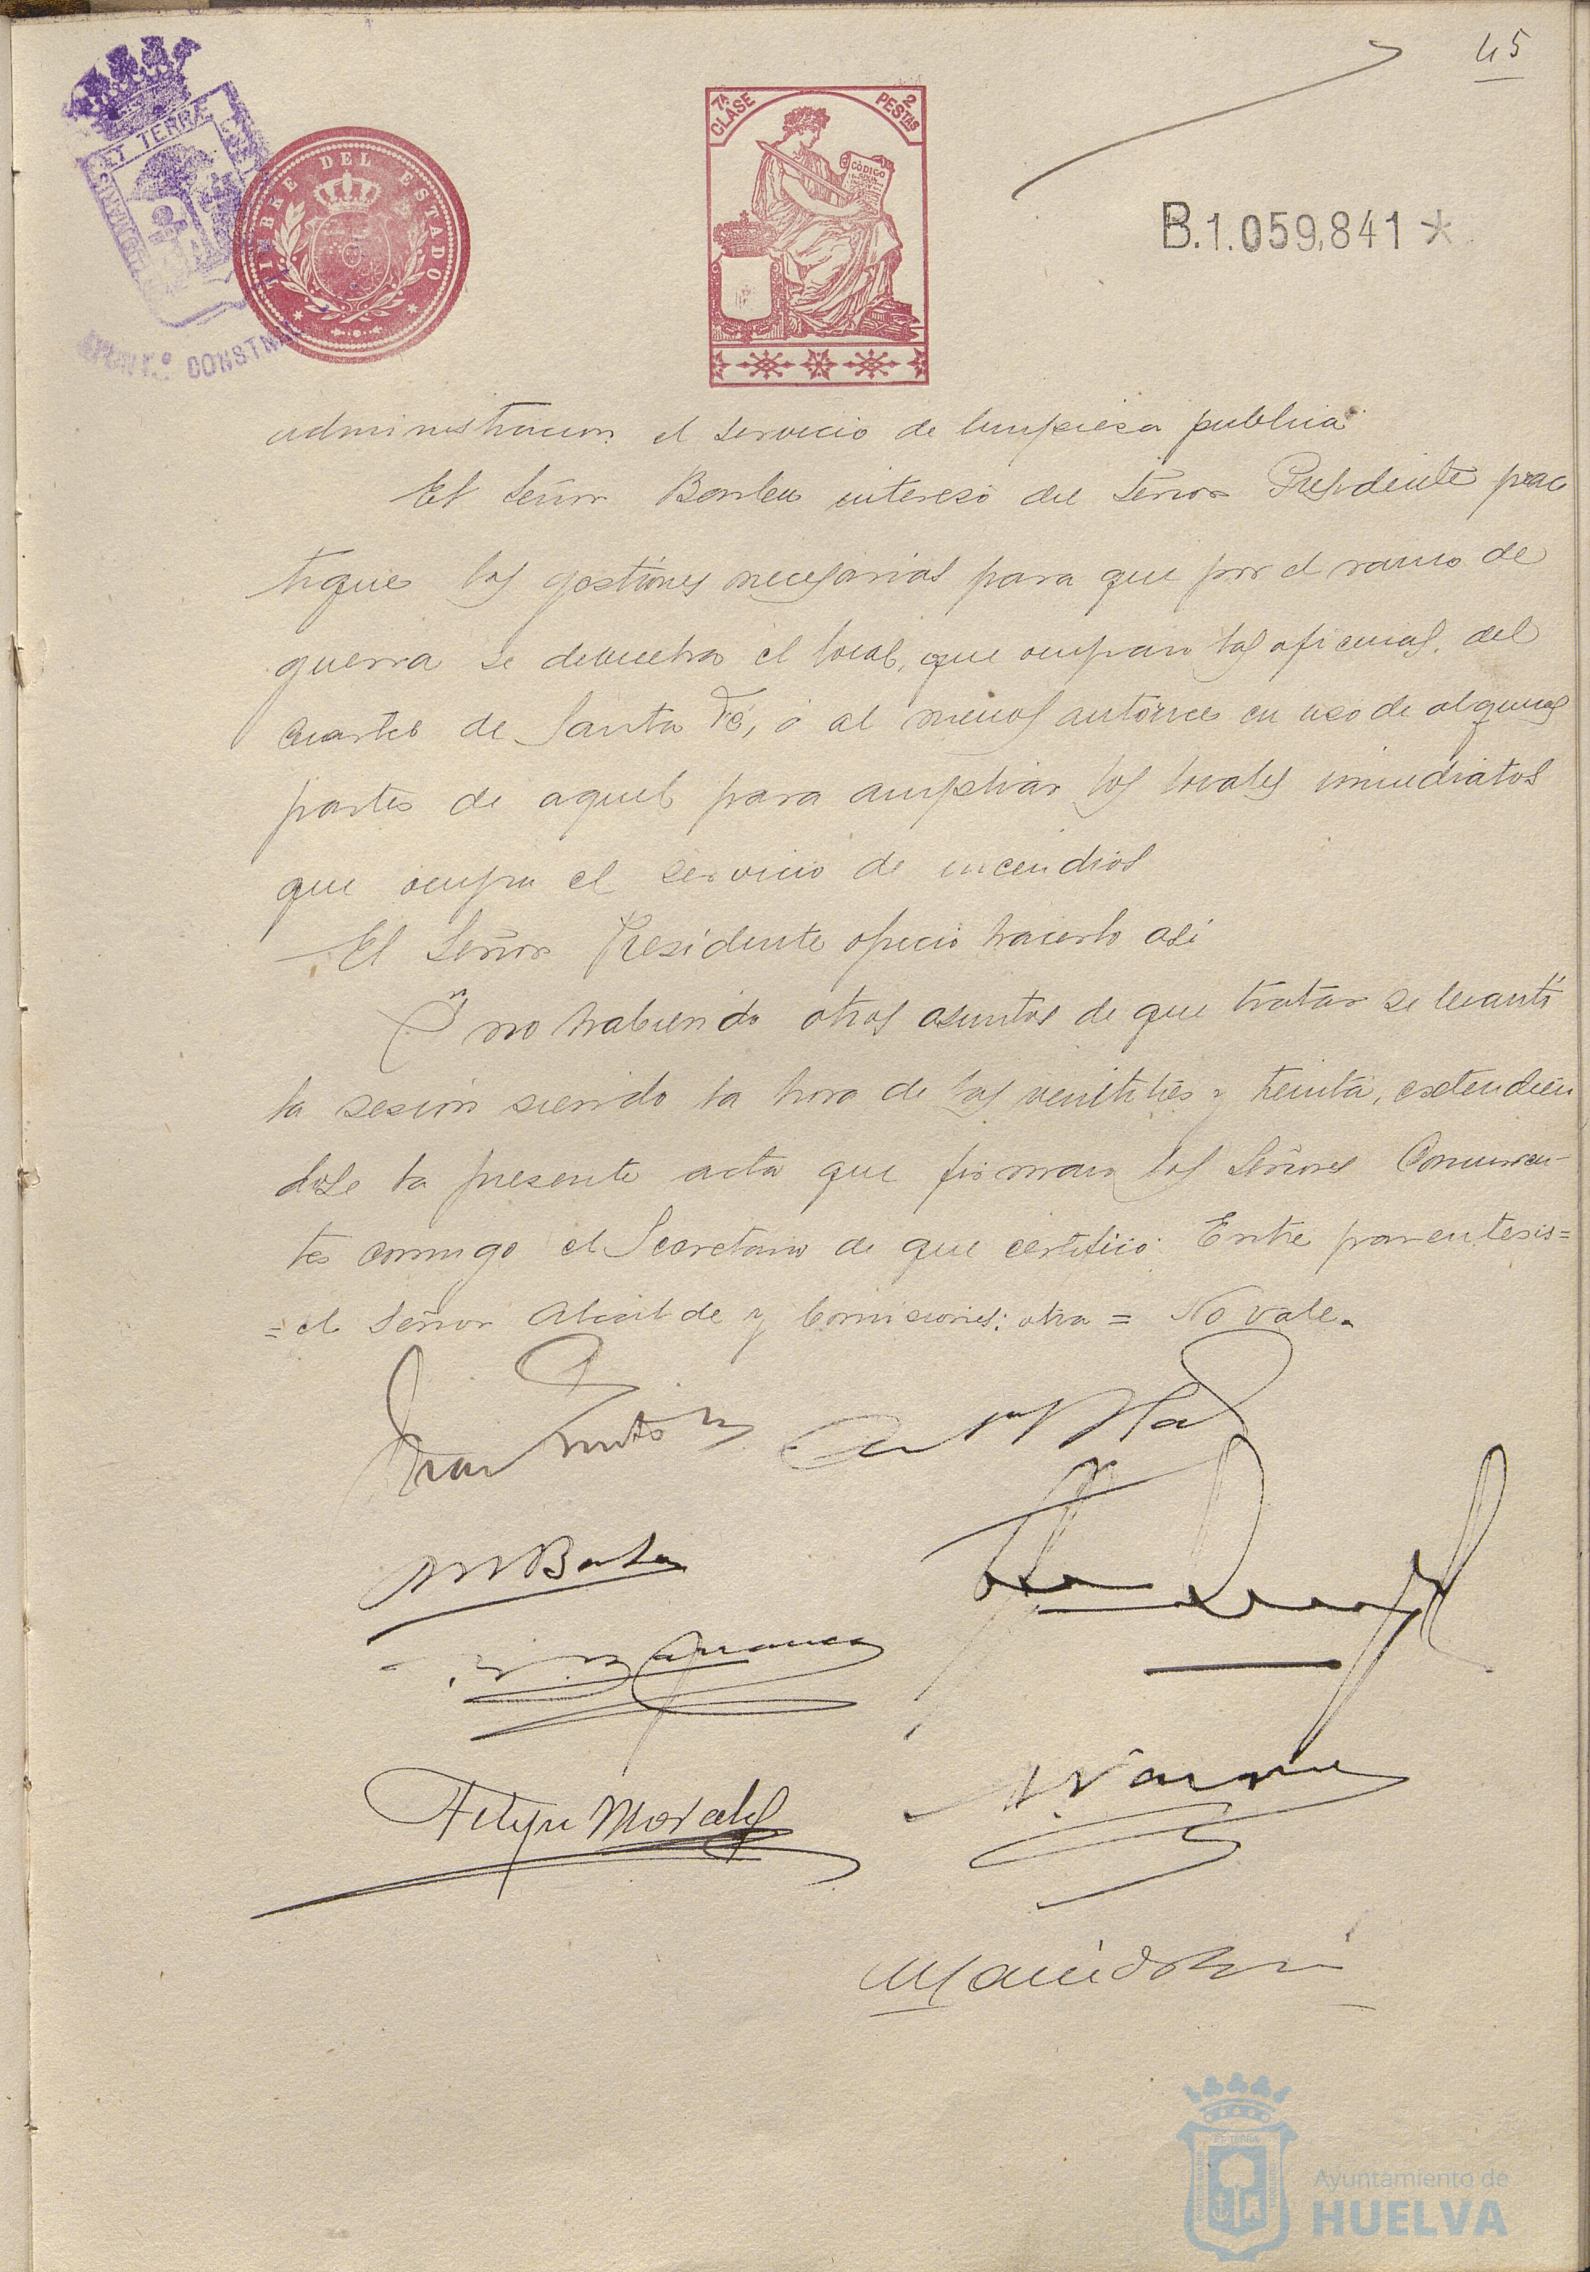 45
ET TERRÆ
TIMBRE DEL ESTADO
7ª CLASE
2 PESTAS
CÓDIGO
B.1.059,841 *
CONSTNAL
administracion el servicio de limpieza publica.
El Señor Barba intereso del Señor Presidente prac
tique las gestiones necesarias para que por el ramo de
guerra se devuelva el local, que ocupan las oficinas, del
Cuartel de Santa Fé, ó al menos autorice en uso de algunas
partes de aquel para ampliar los locales inmediatos
que ocupa el servicio de incendios
El Señor Presidente ofrecio hacerlo asi
Y no habiendo otros asuntos de que tratar se levantó
la sesion siendo la hora de las veintitres y treinta, extendien
dose la presente acta que firman los Señores Concurren-
tes conmigo el Secretario de que certifico. Entre parentesis=
= el Señor Alcalde y Comisiones: otra = No vale.
M Barba
Felipe Morales
Ayuntamiento de
HUELVA